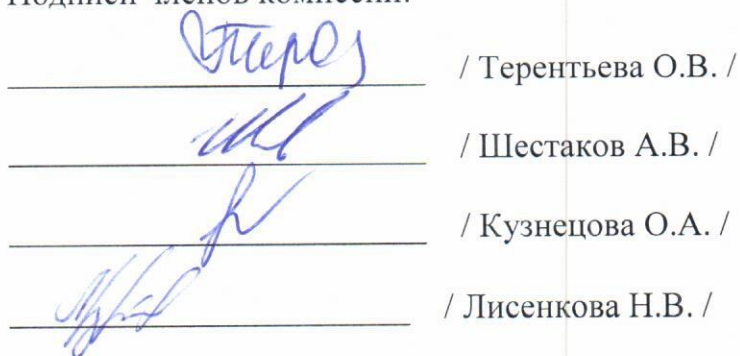 Подписи членов комиссии:
/ Терентьева О.В. /
/ Шестаков А.В. /
/ Кузнецова О.А. /
/ Лисенкова Н.В. /